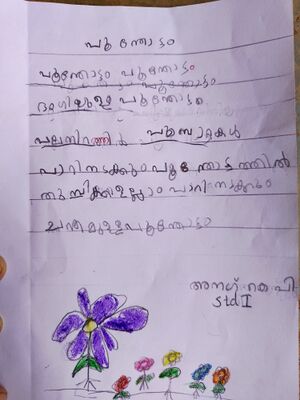 പൂന്തോട്ടം
പൂന്തോട്ടം പൂന്തോട്ടം
ഭംഗിയുള്ള പൂന്തോട്ടം
പലനിറത്തിൽ പൂമ്പാറ്റകൾ
പാറിനടക്കും പൂന്തോട്ടത്തിൽ
തുമ്പികളെല്ലാം പാറിനടക്കും
ചന്തമുള്ള പൂന്തോട്ടം
അനഘ് കെ പി
std I